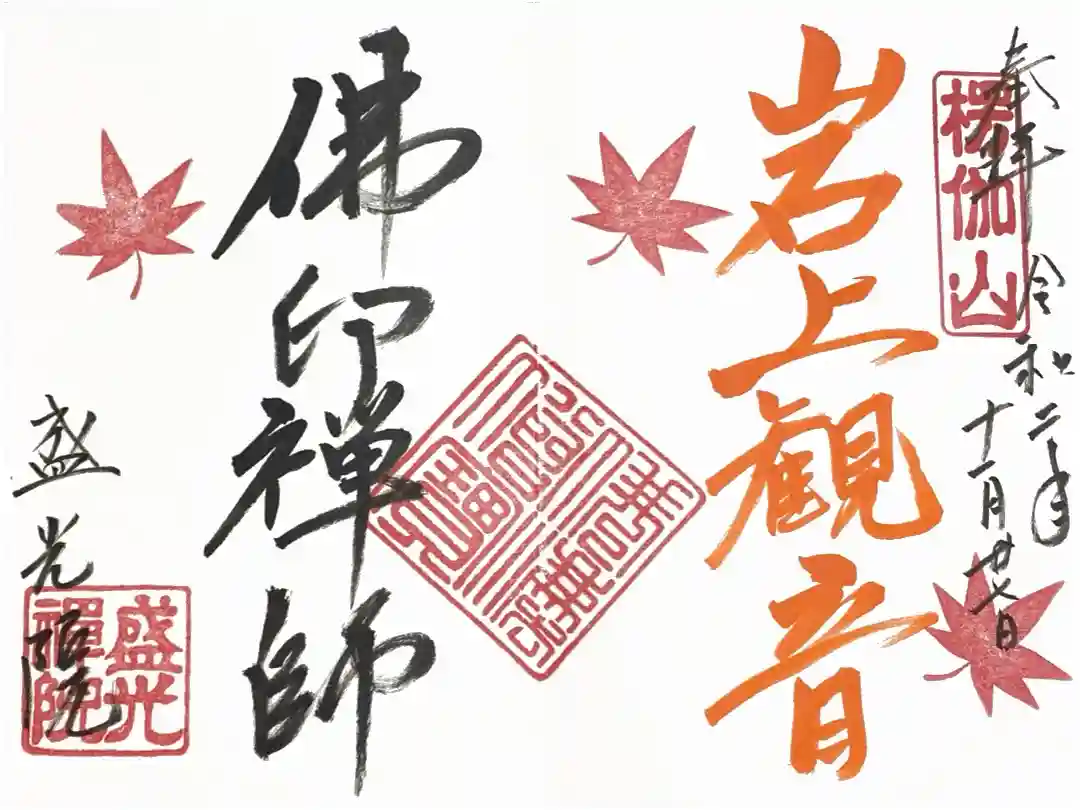 奉拝 令和二年
十一月廿七日
楞伽山
岩上観音
佛印禅師
盛光院
盛光
禪院